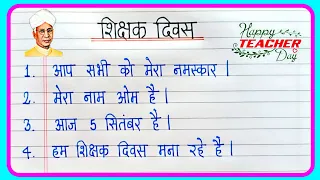 शिक्षक दिवस
Happy
TEACHER
Day
1. आप सभी को मेरा नमस्कार |
2. मेरा नाम ओम है |
3. आज 5 सितंबर है |
4. हम शिक्षक दिवस मना रहे है |